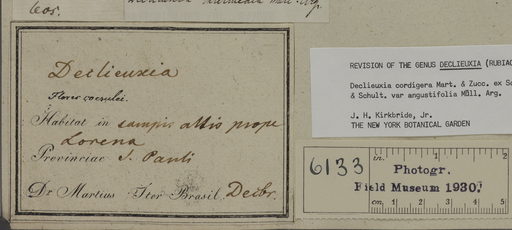 Declieuxia
Flores coerulei.
Habitat in campis altis prope
Lorena
Provinciae S. Pauli
Dr Martius Iter Brasil. Decbr.
REVISION OF THE GENUS DECLIEUXIA (RUBIAC
Declieuxia cordigera Mart. & Zucc. ex Sc
& Schult. var angustifolia Müll. Arg.
J. H. Kirkbride, Jr.
THE NEW YORK BOTANICAL GARDEN
6133
in. 1 2
Photogr.
Field Museum 1930.
cm. 1 2 3 4 5